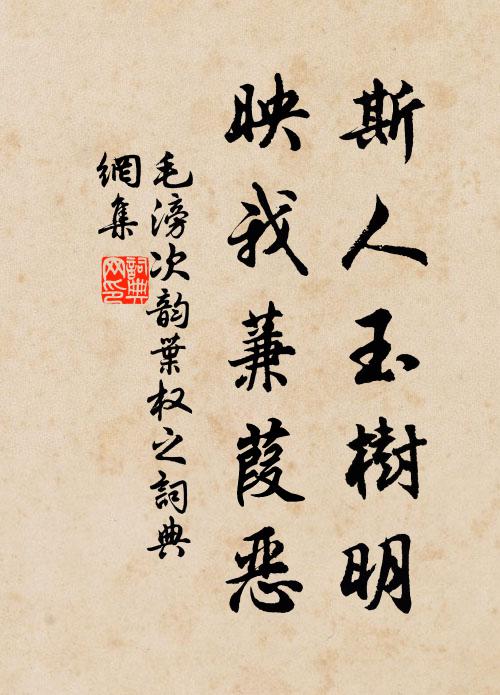 斯人玉樹明
映我蒹葭惡
毛滂次韵葉权之詞典
網集
詞典網印